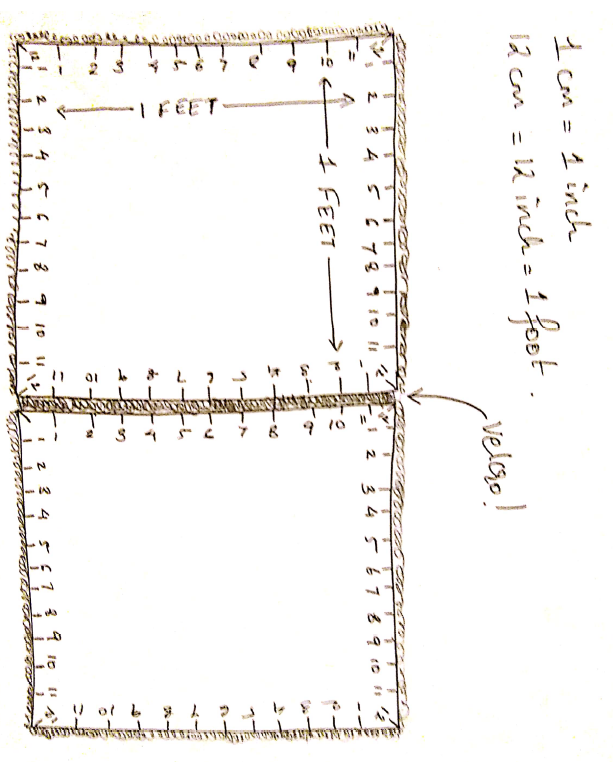 1 cm = 1 inch
12 cm = 12 inch = 1 foot.
velcro!
1 2 3 4 5 6 7 8 9 10 11 12
1 2 3 4 5 6 7 8 9 10 11 12
1 2 3 4 5 6 7 8 9 10 11 12
1 2 3 4 5 6 7 8 9 10 11 12
1 FEET
1 FEET
1 2 3 4 5 6 7 8 9 10 11 12
1 2 3 4 5 6 7 8 9 10 11 12
1 2 3 4 5 6 7 8 9 10 11 12
1 2 3 4 5 6 7 8 9 10 11 12